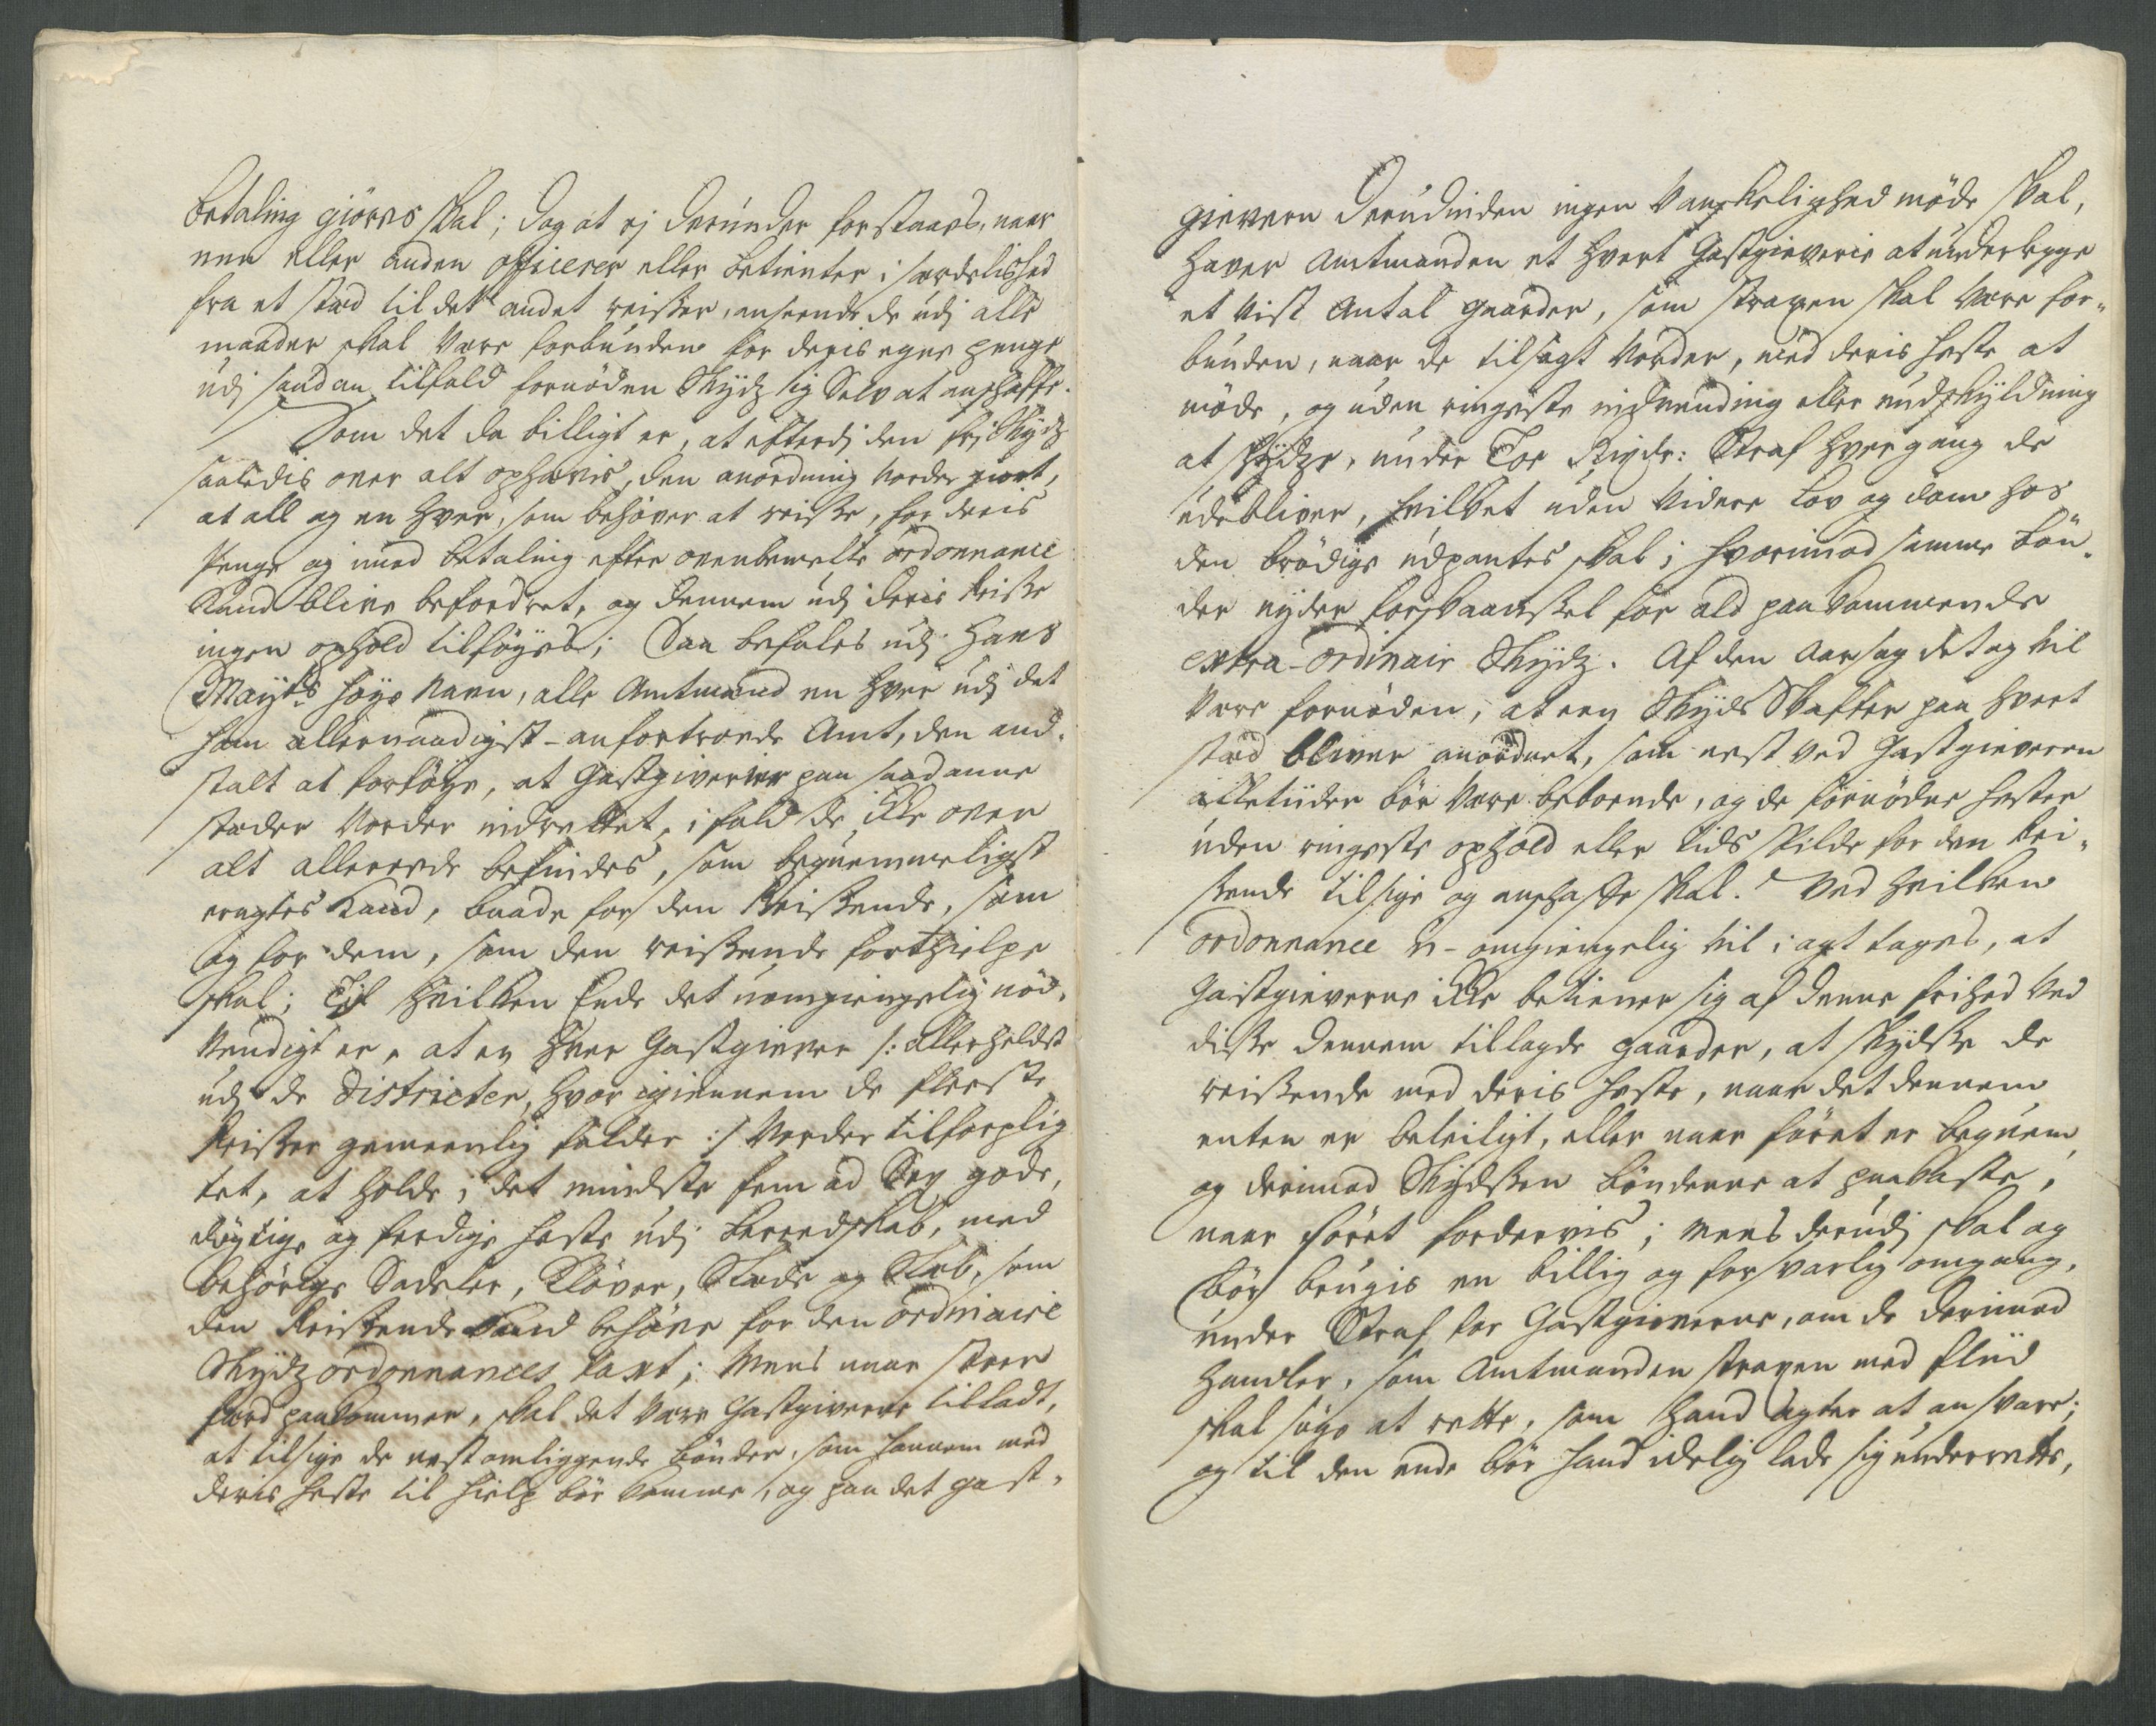 betaling giøres skal; dog at ej derunder forstaaes, naar
een eller anden officerer eller betienter i særdelished
fra et stæd til det andet reiser, anseende de udj alle
maader skal være forbunden for deris egne penge
udj saadan tilfald fornøden Skydz sig Selv at anskaffe.
Som det da billigt er, at efterdj den frj Skydz
saaledis over alt ophævis, den anordning vorder giort,
at all og en hver, som behøver at reise, for deris
Penge og imod betaling efter ovenbemelte ordonnance
kand blive befordret, og dennem udj deris Reise
ingen ophold tilføyes; Saa befales udj Hans
Mayts. høye Navn, alle Amtmænd en hver udj det
ham allernaadigst-anfortroede Amt, den and-
stalt at forføye, at Gastgiverier paa saadanne
stæder vorder indrettet, i fald de ikke over
alt allereede befindes, som beqvemmeligst
eragtes kand, baade for den Reisende, som
og for dem, som den reisende forthielpe
skal; Til hvilken Ende det uomgiengelig nød-
vendigt er, at en hver Gastgiever /: allerheldst
udj de districter, hvor igiennem de fleeste
Reiser gemeenlig falder :/ vorder tilforplig
tet, at holde i det mindste fem ad Sex gode,
dygtige og ferdige heste udj beredskab, med
behørige Sadeler, Kløver, Slæde og Skab, som
den Reisende kand behøve for den ordinaire
Skydz ordonnances taxt; Mens naar større
færd paakommer, skal det være Gastgiverne tilladt,
at tilsige de nestomliggende bønder, som hannem med
deris heste til hielp bør komme, og paa det gast-
gievern derudinden ingen vanskelighed møde skal,
haver Amtmanden et hvert Gastgieverie at underlegge
et vist Antal gaarder, som straxen skal være for-
bunden, naar de tilsagt vorder, med deris heste at
møde, og uden ringeste indvending eller undskyldning
at skydze, under Toe Rixdr: Straf hver gang de
udebliver, hvilket uden videre Lov og dom hos
den brødige udpantes skal; hvorimod samme bøn-
der nyder forskaansel for ald paakommende
extra-ordinair Skydz. Af den Aarsag det og vil
være fornøden, at een Skyds Skaffer paa hvert
stæd bliver anordnet, som nest ved Gastgieveren
alletiider bør være boeende, og de fornødne hester
uden ringeste ophold eller tids spilde for den Rei-
sende tilsige og anskaffe skal. Ved hvilken
ordonnance u-omgiengelig vil i agt tages, at
Gastgieverne ikke betiener sig af denne frihed ved
disse dennem tillagde gaarder, at skydse de
reisende med deris heste, naar det dennem
enten er beleiligt, eller naar føret er beqvem,
og derimod Skydsen bønderne at paakaste,
naar føret fordervis; Mens derudj skal og
bør brugis en billig og forsvarlig omgang,
under Straf for Gastgieverne, om de derimod
handler, som Amtmanden straxen med fliid
skal søge at rette, som hand agter at ansvare;
og til den ende bør hand idelig lade sig underrette,